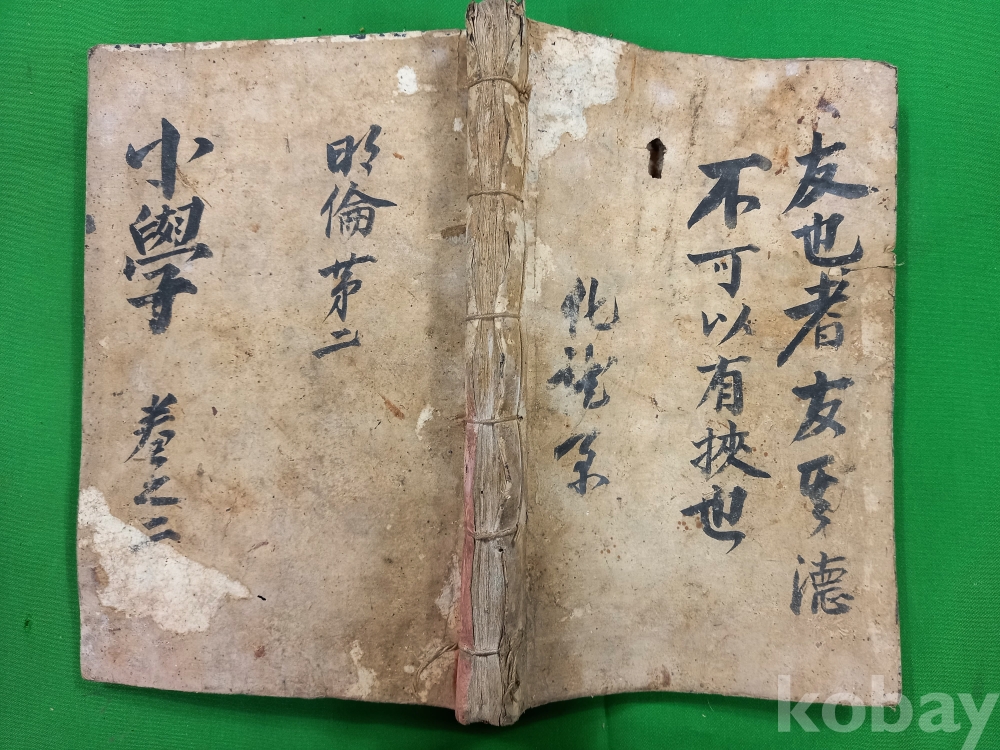 友也者友其德
不可以有挾也
化
明倫第二
小學 卷之二
kobay